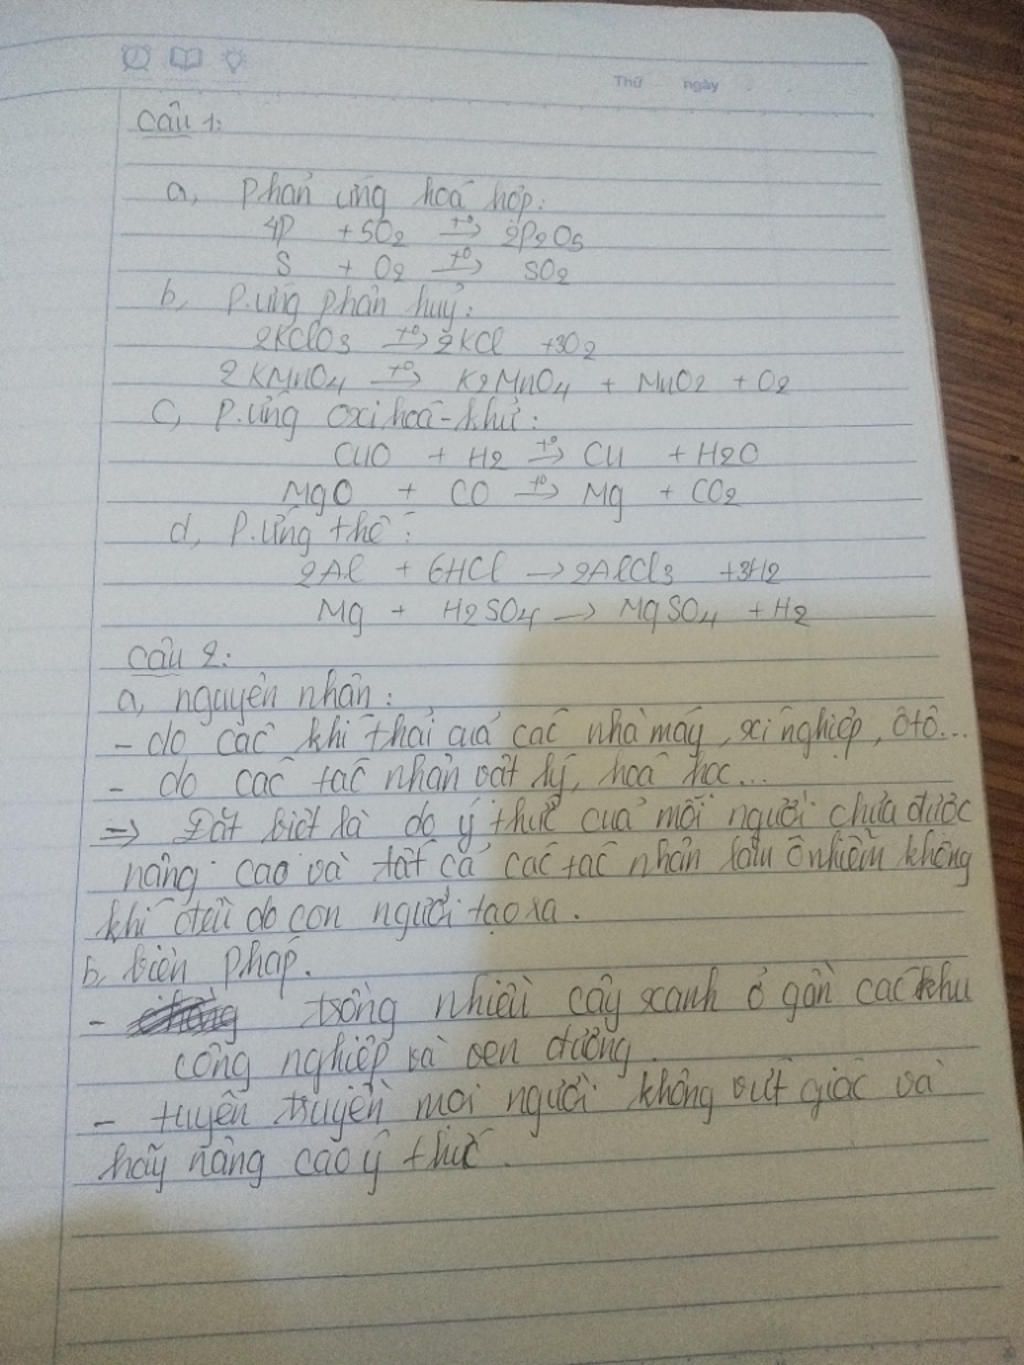 Thứ ngày
Câu 1:
a, Phản ứng hoá hợp:
4P + 5O2 t°→ 2P2O5
S + O2 t°→ SO2
b, P.ứng phân huỷ:
2KClO3 t°→ 2KCl + 3O2
2KMnO4 t°→ K2MnO4 + MnO2 + O2
c, P.ứng oxi hoá - khử:
CuO + H2 t°→ Cu + H2O
MgO + CO t°→ Mg + CO2
d, P.ứng thế:
2Al + 6HCl → 2AlCl3 + 3H2
Mg + H2SO4 → MgSO4 + H2
Câu 2:
a, nguyên nhân:
- do các khí thải quá các nhà máy, xí nghiệp, ôtô...
- do các tác nhân vật lý, hoá học...
=> Đặt biệt là do ý thức của mỗi người chưa được
nâng cao và tất cả các tác nhân làm ô nhiễm không
khí đều do con người tạo ra.
b, biện pháp.
- trồng nhiều cây xanh ở gần các khu
công nghiệp và ven đường.
- tuyên truyền mọi người không vứt giác và
hãy nâng cao ý thức.